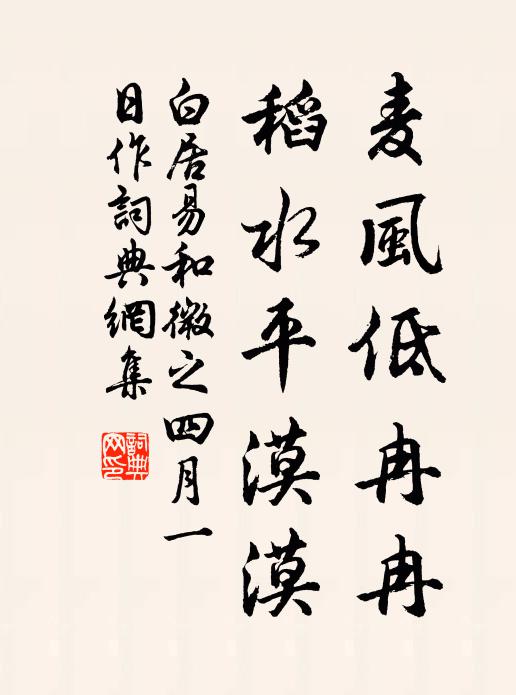 麦風低冉冉
稻水平漠漠
白居易和微之四月一
日作詞典網集
詞典网印